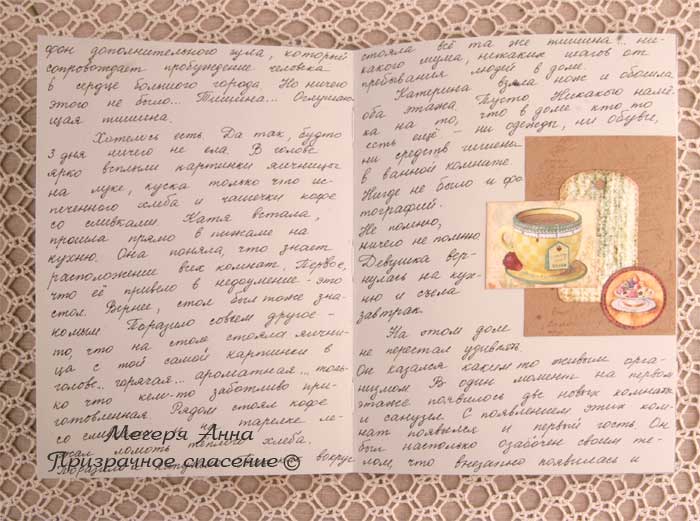 фон дополнительного гула, который
сопровождает пробуждение человека
в сердце большого города. Но ничего
этого не было... Тишина... Оглушаю-
щая тишина.
Хотелось есть. Да так, будто
3 дня ничего не ела. В голове
ярко всплыли картинки яичницы
на луке, куска только что ис-
печенного хлеба и чашечки кофе
со сливками. Катя встала,
прошла прямо в пижаме на
кухню. Она поняла, что знает
расположение всех комнат. Первое,
что её привело в недоумение - это
стол. Вернее, стол был тоже зна-
комым. Поразило совсем другое -
то, что на столе стояла яични-
ца с той самой картинки в
голове.. горячая... ароматная... толь-
ко что кем-то заботливо при-
готовленная. Рядом стоял кофе
со сливками и на тарелке ле-
жал ломоть теплого хлеба.
вокруг
Мегеря Анна
Призрачное спасение ©
стояла всё та же тишина... ни-
какого шума, никаких шагов от
пребывания людей в доме.
Катерина взяла нож и обошла
оба этажа. Пусто. Никакого намё-
ка на то, что в доме кто-то
есть ещё - ни одежды, ни обуви,
ни средств гигиены
в ванной комнате.
Нигде не было и фо
тографий.
Не помню,
ничего не помню.
Девушка вер-
нулась на кух-
ню и съела
завтрак.
На этом дом
не перестал удивлять.
Он казался каким-то живым орга-
низмом. В один момент на первом
этаже появилось две новых комнаты
и санузел. С появлением этих ком-
нат появился и первый гость. Он
был настолько озабочен своим те-
лом, что внезапно появилась и